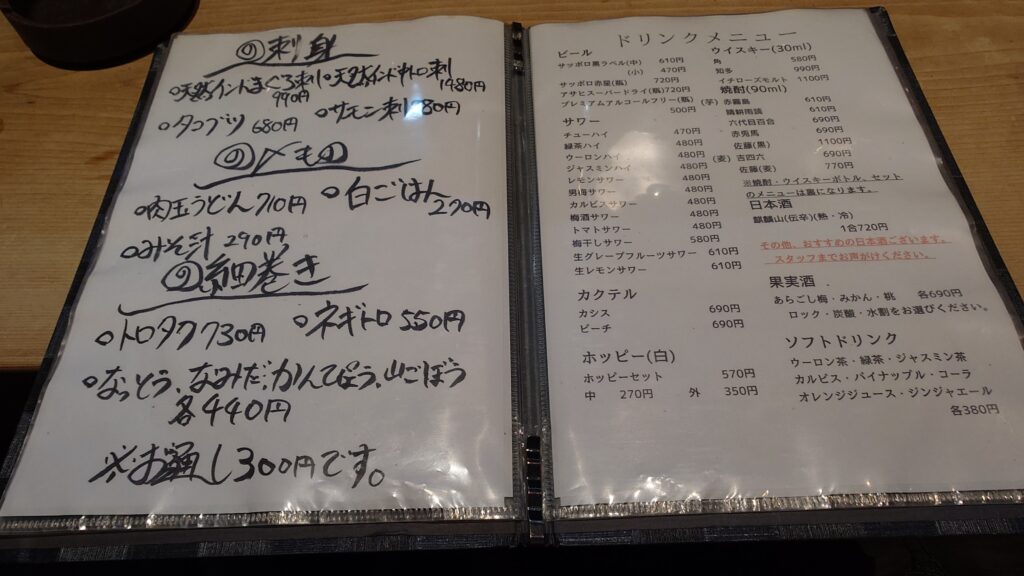 の刺身
○天然インドまぐろ刺 990円
○天然インド中トロ刺 1480円
○タコブツ 680円
○サーモン刺 780円
の〆もの
○肉玉うどん 710円
○白ごはん 270円
○みそ汁 290円
の細巻き
○トロタク 730円
○ネギトロ 550円
○なっとう、なみだ、かんぴょう、山ごぼう
各440円
※お通し300円です。
ドリンクメニュー
ビール
サッポロ黒ラベル(中) 610円
(小) 470円
サッポロ赤星(瓶) 720円
アサヒスーパードライ(瓶)720円
プレミアムアルコールフリー(瓶) 500円
サワー
チューハイ 470円
緑茶ハイ 480円
ウーロンハイ 480円
ジャスミンハイ 480円
レモンサワー 480円
男梅サワー 480円
カルピスサワー 480円
梅酒サワー 480円
トマトサワー 480円
梅干しサワー 580円
生グレープフルーツサワー 610円
生レモンサワー 610円
カクテル
カシス 690円
ピーチ 690円
ホッピー(白)
ホッピーセット 570円
中 270円 外 350円
ウイスキー(30ml)
角 580円
知多 990円
イチローズモルト 1100円
焼酎(90ml)
(芋) 赤霧島 610円
晴耕雨読 610円
六代目百合 690円
赤兎馬 690円
佐藤(黒) 1100円
(麦) 吉四六 690円
佐藤(麦) 770円
※焼酎・ウイスキーボトル、セット
のメニューは裏になります。
日本酒
麒麟山(伝辛)(熱・冷)
1合720円
その他、おすすめの日本酒ございます。
スタッフまでお声がけください。
果実酒
あらごし梅・みかん・桃 各690円
ロック・炭酸・水割をお選びください。
ソフトドリンク
ウーロン茶・緑茶・ジャスミン茶
カルピス・パイナップル・コーラ
オレンジジュース・ジンジャエール
各380円